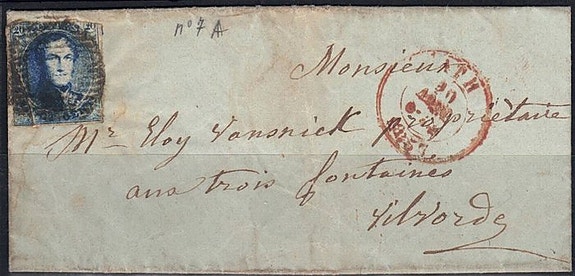 20 20
n° 7 A
Monsieur
Mr Eloy Vansnick propriétaire
aux trois fontaines
Vilvorde